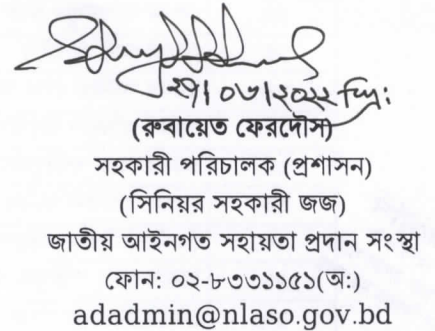 ২৭/০৩/২০২২ খ্রি:
(রুবায়েত ফেরদৌস)
সহকারী পরিচালক (প্রশাসন)
(সিনিয়র সহকারী জজ)
জাতীয় আইনগত সহায়তা প্রদান সংস্থা
ফোন: ০২-৮৩৩১১৫১(অ:)
adadmin@nlaso.gov.bd